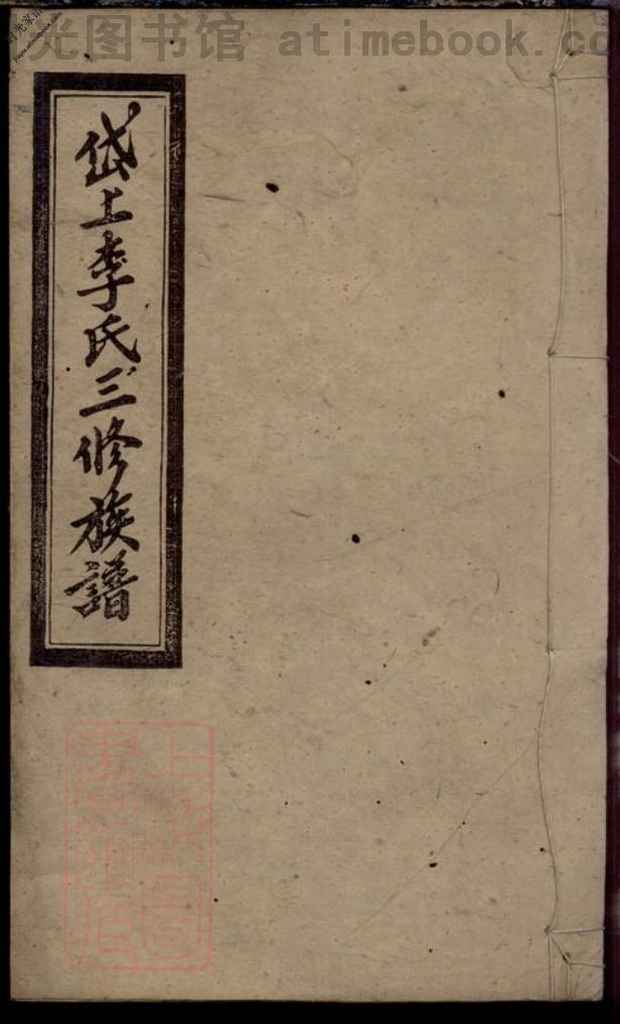 光图书馆 atimebook.co
岱上李氏三修族譜